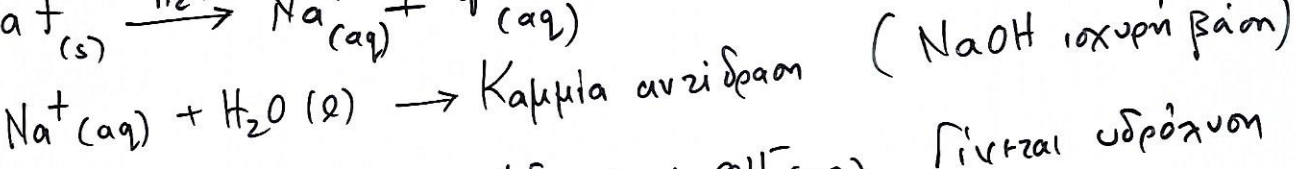 (s) → Na (aq) + (aq)
Na⁺ (aq) + H₂O (l) → Καμμία αντίδραση (NaOH ισχυρή βάση)
Γίνεται υδρόλυση